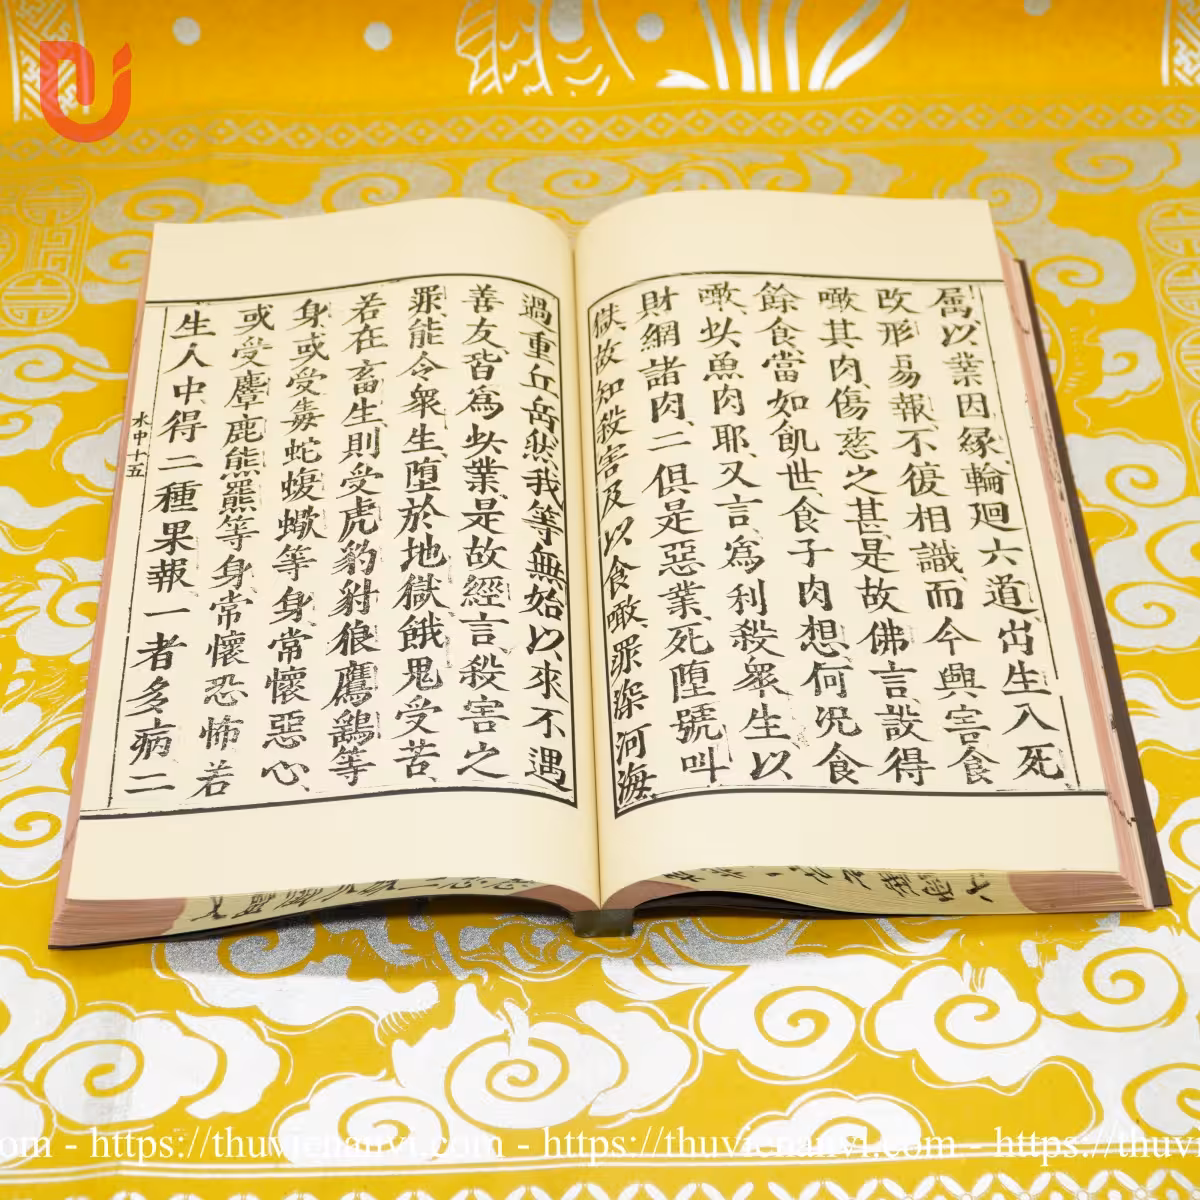 属以業因緣輪廻六道出生入死
改形易報不復相識而今興害食
噉其肉傷慈之甚是故佛言設得
餘食當如飢世食子肉想何况食
噉此魚肉耶又言爲利殺衆生以
財網諸肉二俱是惡業死墮號叫
獄故知殺害及以食噉罪深河海
過重丘岳然我等無始以來不遇
善友皆爲此業是故經言殺害之
罪能令衆生墮於地獄餓鬼受苦
若在畜生則受虎豹豺狼鷹鷂等
身或受毒蛇蝮蠍等身常懷惡心
或受麞鹿熊羆等身常懷恐怖若
生人中得二種果報一者多病二
水中十五
om - https://thuvienanvi.com - https://thuvienanvi.com - https://thuvi